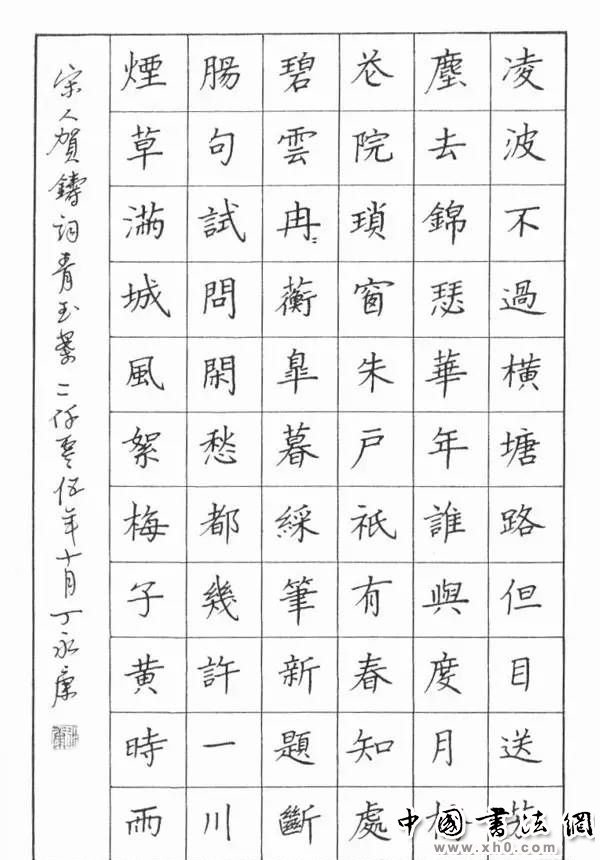 凌波不過橫塘路但目送芳
塵去錦瑟華年誰與度月橋
花院瑣窗朱戶祇有春知處
碧雲冉〻蘅皐暮綵筆新題斷
腸句試問閑愁都幾許一川
煙草滿城風絮梅子黄時雨
宋人賀鑄詞青玉案二仟零伍年十月丁永康
中國書法網
www.xh0.com